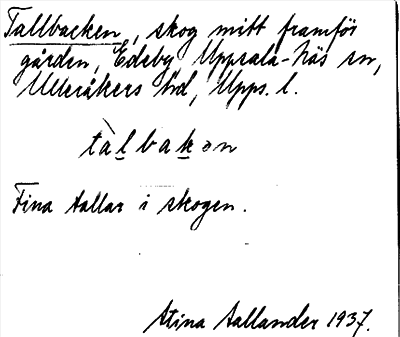 Tallbacken, skog mitt framför
gården, Edeby Uppsala-Näs sn,
Ulleråkers hd, Upps. l.
tàl̲bak̲ən
Fina tallar i skogen.
Stina Aallander 1937.